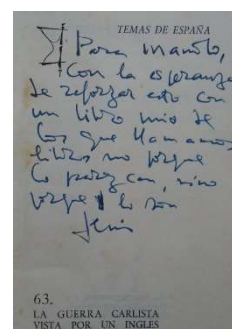 TEMAS DE ESPAÑA
Para Manolo,
Con la esperanza
de reforzar esto con
un libro mio de
los que llamamos
libros no porque
lo parezcan, sino
porque lo son
63.
LA GUERRA CARLISTA
VISTA POR UN INGLES